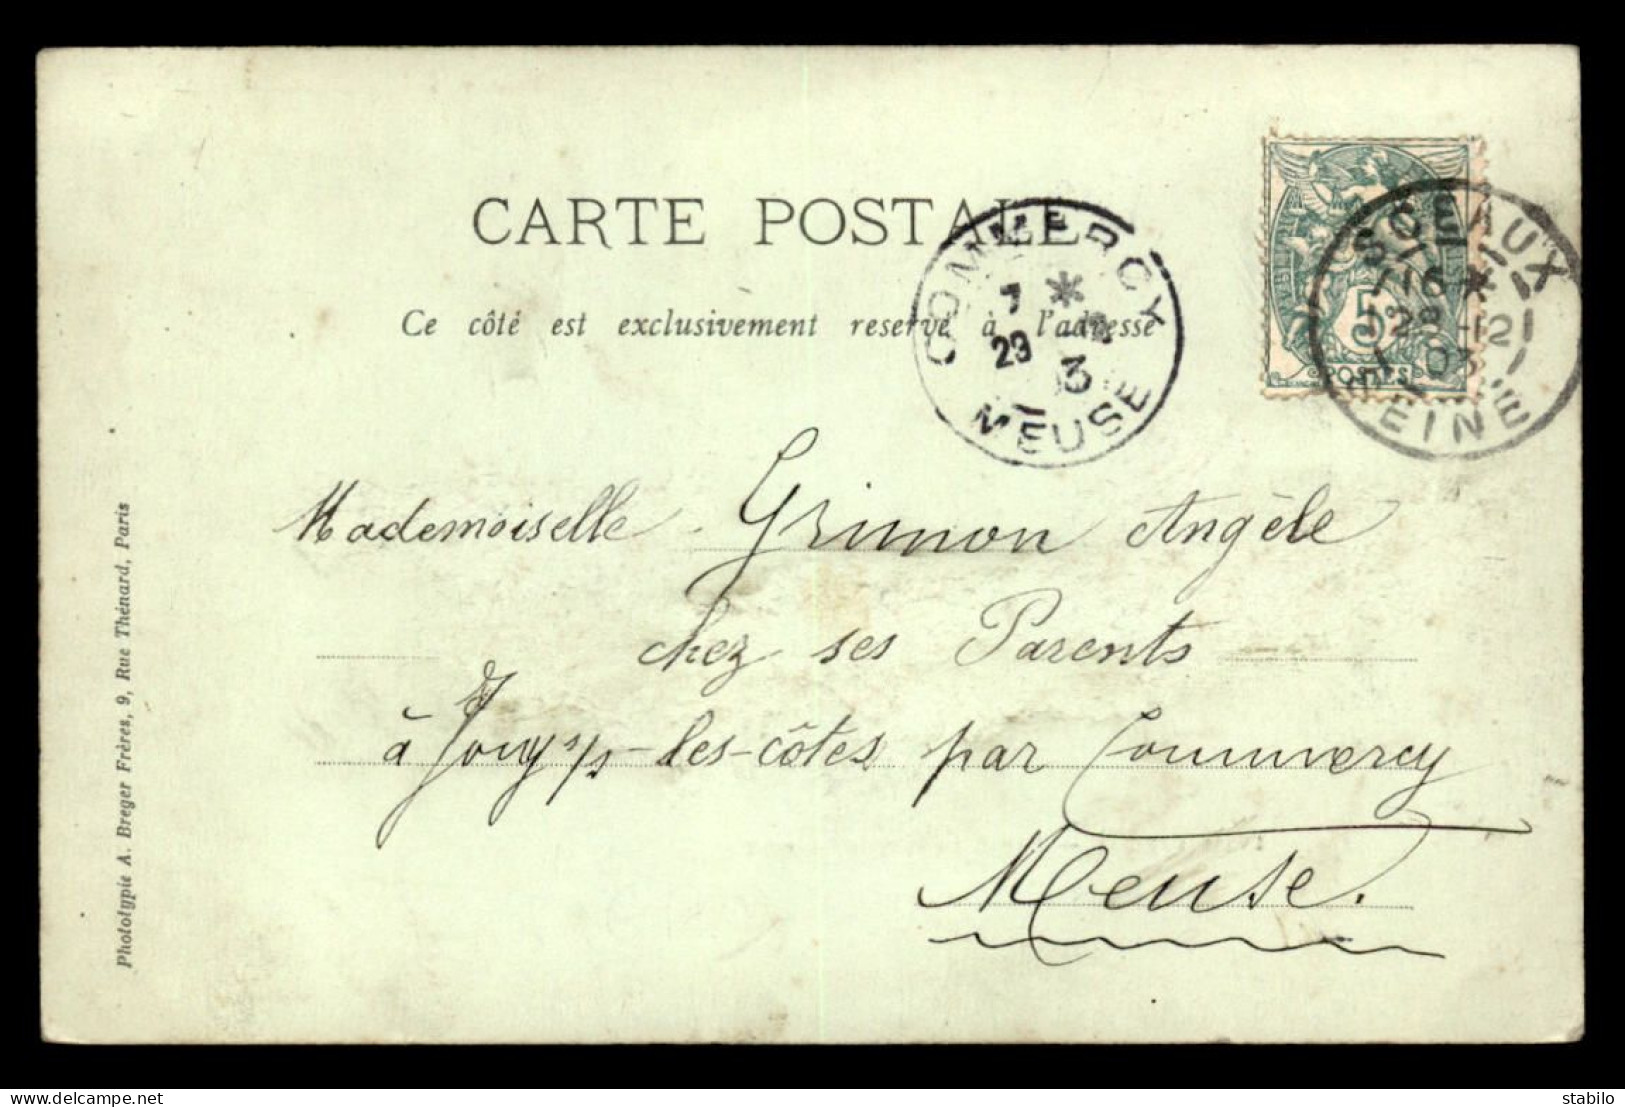 CARTE POSTALE
Ce côté est exclusivement reservé à l'adresse
COMMERCY
7 *
23 12
3
MEUSE
SCEAUX
16 *
28 12
03
SEINE
5
POSTES
Mademoiselle Grimon Angèle
chez ses Parents
à Jouy s/s-les-côtes par Commercy
Meuse.
Phototypie A. Breger Frères, 9, Rue Thénard, Paris
www.delcampe.net
stabilo